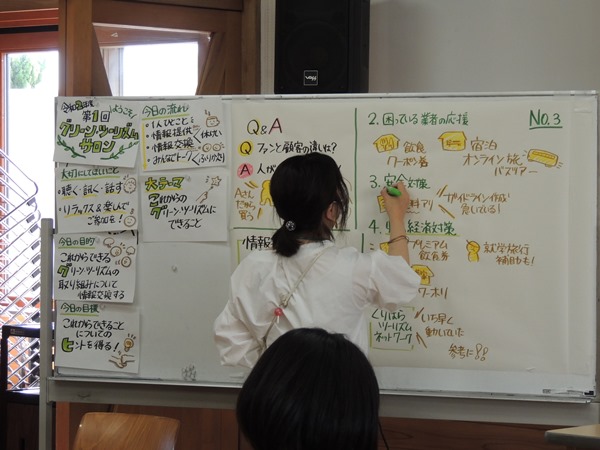 令和2年度
ようこそ!
第1回
グリーン・ツーリズム
サロン
大切にしてほしいこと
・聴く・訊く・話す
・リラックス&楽しんで
ご参加を!
今日の目的
これからできる
グリーン・ツーリズムの
取り組みについて
情報交換する
今日の目標
これからできること
についての
ヒントを得る!
今日の流れ
・1人ひとこと
・情報提供
・情報交換
・みんなでトーク
ふりかえり
大テーマ
これからの
グリーン・ツーリズムに
できること
Q&A
Q ファンと顧客の違いは?
A 人が
Aさん
だから
買う!
情報
2.困っている業者の応援
No.3
飲食
クーポン券
宿泊
オンライン旅
バスツアー
3.安全対策
ガイドライン作成
急いでいる!
4.
経済対策
プレミアム
飲食券
就学旅行
補助かも!
ワーホリ
くりはら
ツーリズム
ネットワーク
いち早く
動いていた
参考に!!